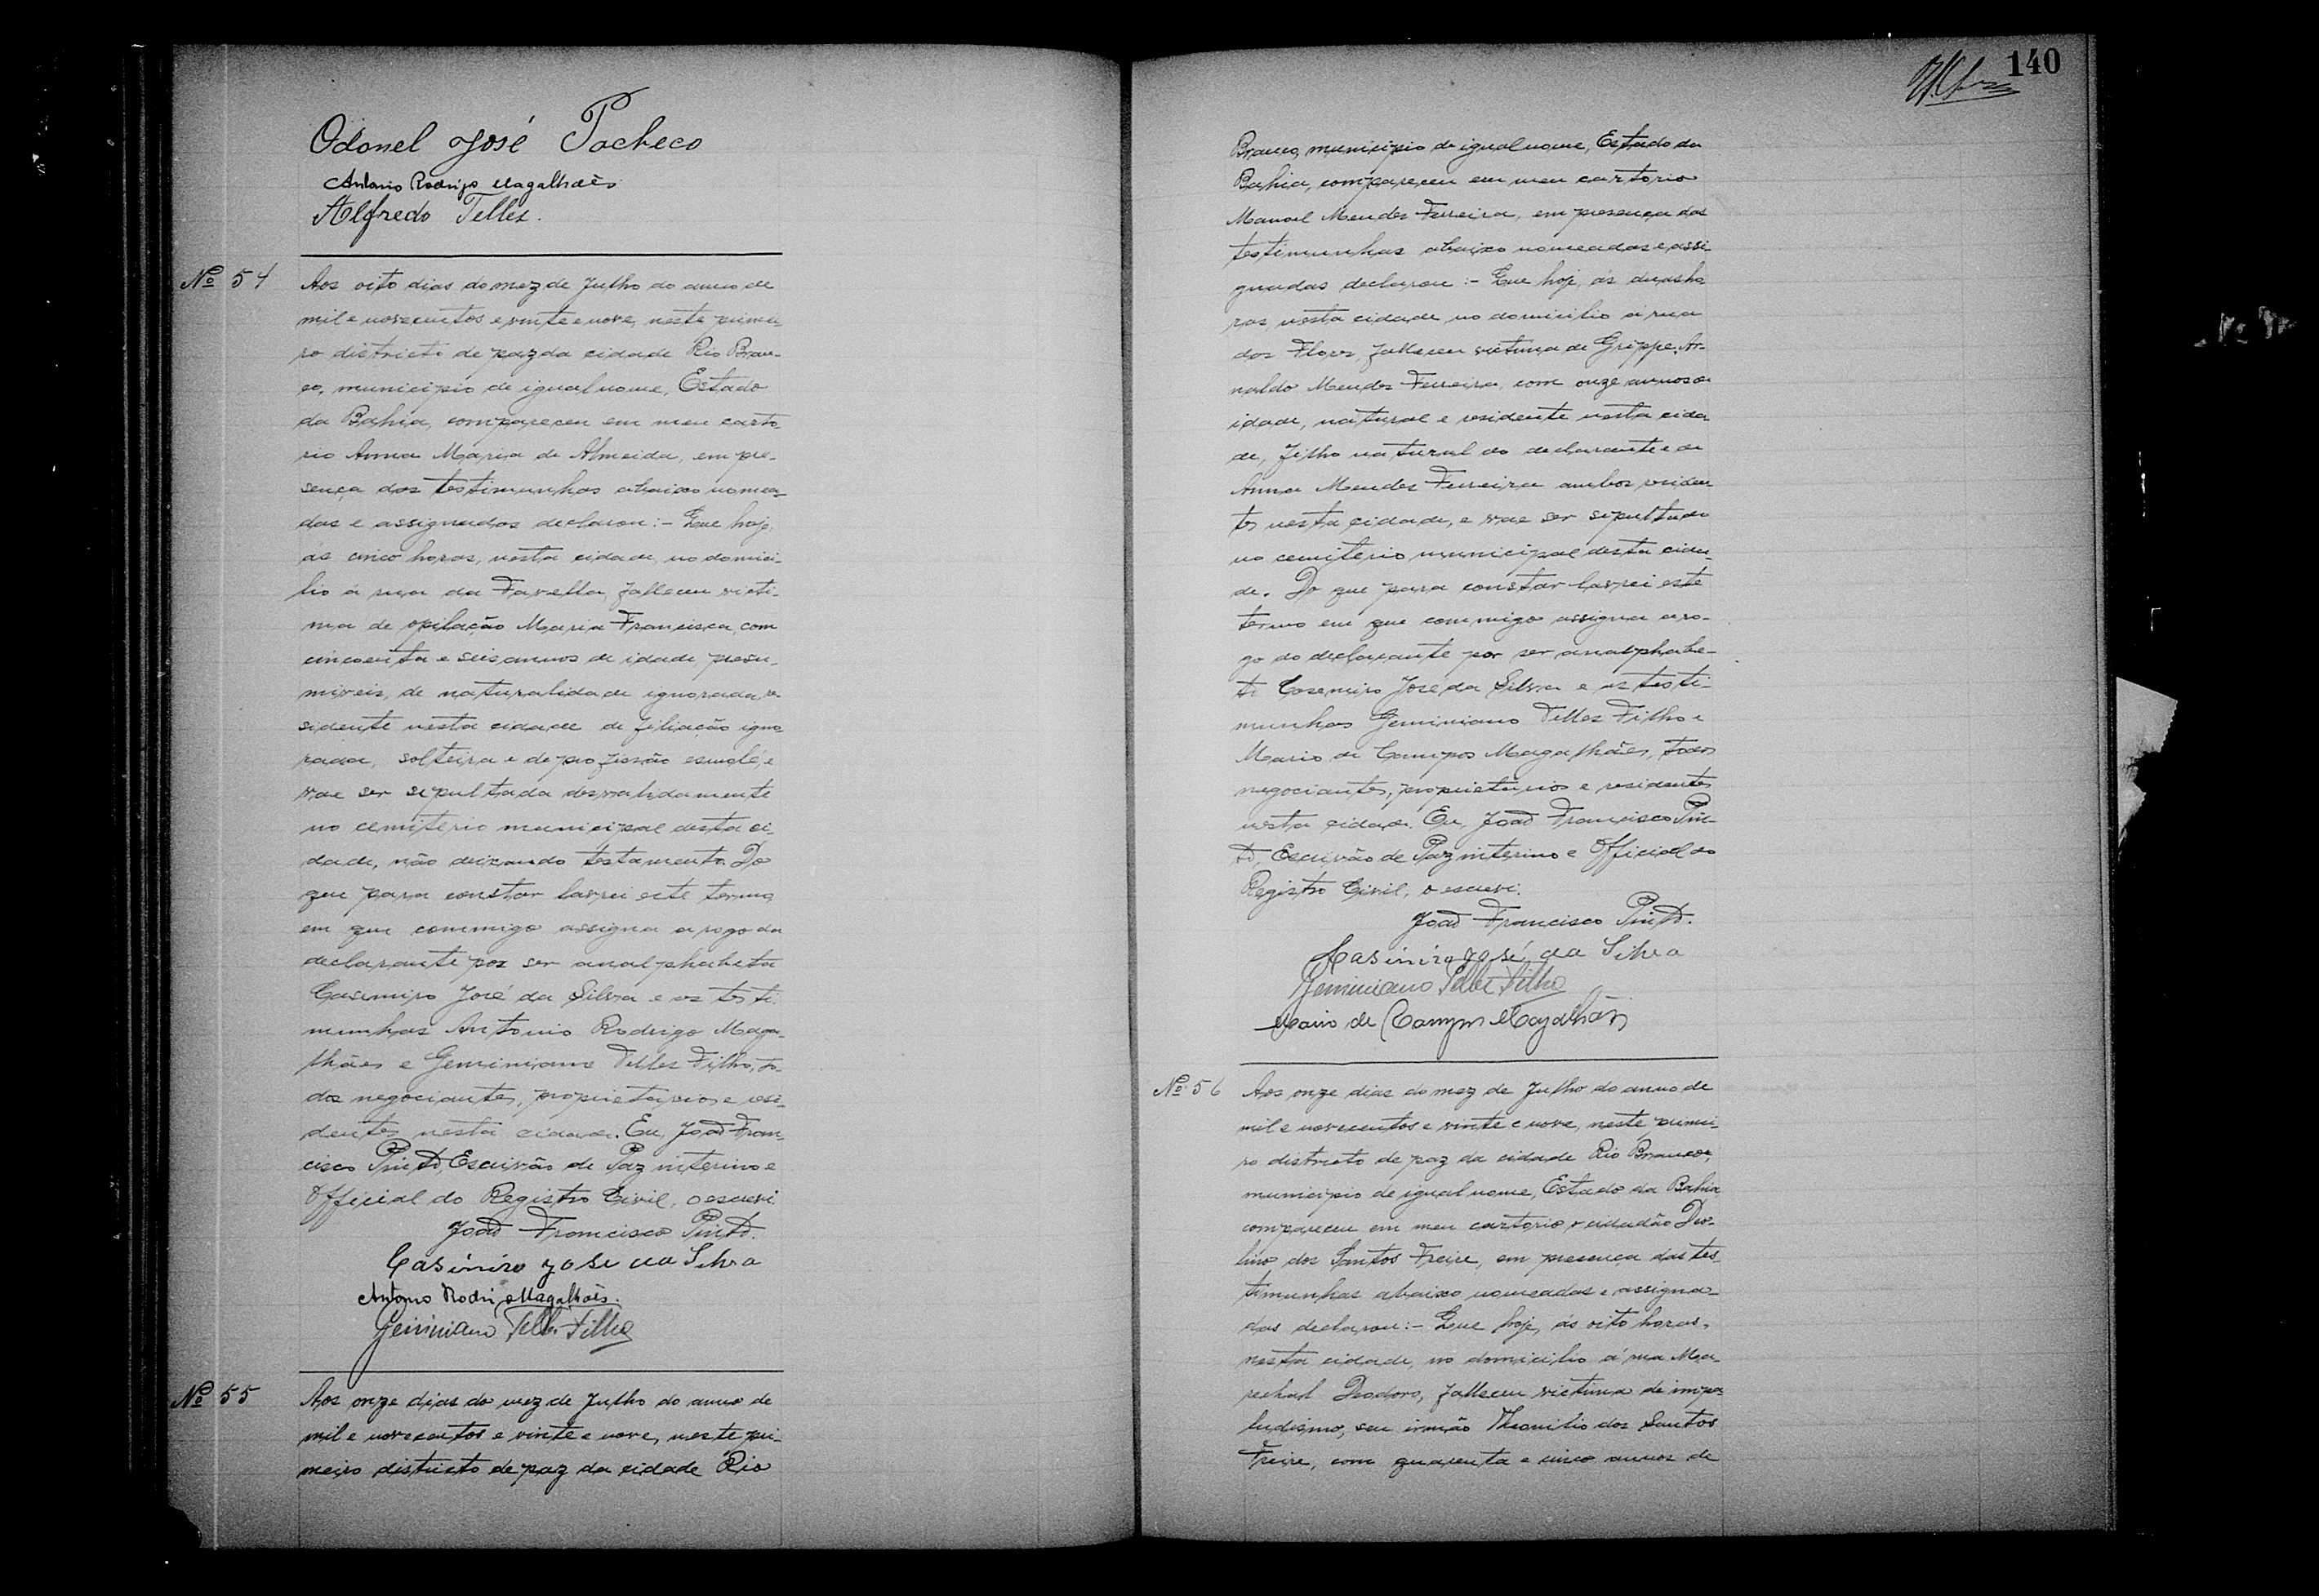 Odonel José Pacheco
Antonio Rodrigo Magalhães
Alfredo Telles.
Nº 54
Aos oito dias do mez de Julho do anno de
mil e novecentos e vinte e nove, neste primei-
ro districto de paz da cidade Rio Bran-
co, municipio de igual nome, Estado
da Bahia, compareceu em meu carto-
rio Anna Maria de Almeida, em pre-
sença das testimunhas abaixo nomea-
das e assignadas declarou:- Que hoje,
ás cinco horas, nesta cidade, no domici-
lio á rua da Favella, falleceu victi-
ma de opilação Maria Francisca, com
cincoenta e seis annos de idade presu-
miveis, de naturalidade ignorada, re
sidente nesta cidade de filiação igno
rada, solteira e de profissão esmolé, e
vae ser sepultada desvalidamente
no cemiterio municipal desta ci-
dade, não deixando testamento. Do
que para constar lavrei este termo
em que commigo assigna a rogo da
declarante por ser analphabeta
Casemiro José da Silva e as testi-
munhas Antonio Rodrigo Maga-
lhães e Geminiano Telles Filho, to-
dos negociantes, proprietarios e resi-
dentes nesta cidade. Eu, João Fran
cisco Pinto, Escrivão de Paz interino e
Official do Registro Civil, o escrevi.
João Francisco Pinto.
Casimiro José da Silva
Antonio Rodrigo Magalhães.
Geminiano Telles Filho
Nº 55
Aos onze dias do mez de Julho do anno de
mil e novecentos e vinte e nove, neste pri-
meiro districto de paz da cidade Rio
140
Branco, municipio de igual nome, Estado da
Bahia, compareceu em meu cartorio
Manoel Mendes Ferreira, em presença das
testimunhas abaixo nomeadas e assi-
gnadas declarou:- Que hoje, ás duas ho
ras nesta cidade no domicilio á rua
das Flores, falleceu victima de Grippe, Ar-
naldo Mendes Ferreira, com onze annos de
idade, natural e residente nesta cida
de, filho natural do declarante e de
Anna Mendes Ferreira ambos residen
tes nesta cidade, e vae ser sepultado
no cemiterio municipal desta cida-
de. Do que para constar lavrei este
termo em que commigo assigna a ro-
go do declarante por ser analphabe-
to Casemiro José da Silva e as testi-
munhas Geminiano Telles Filho e
Mario de Campos Magalhães, todos
negociantes, proprietarios e residentes
nesta cidade. Eu, João Francisco Pin-
to, Escrivão de Paz interino e Official do
Registro Civil, o escrevi.
João Francisco Pinto.
Casimiro José da Silva
Geminiano Telles Filho
Mario de Campos Magalhães
Nº 56
Aos onze dias do mez de Julho do anno de
mil e novecentos e vinte e nove, neste primei-
ro districto de paz da cidade Rio Branco,
municipio de igual nome, Estado da Bahia
compareceu em meu cartorio o cidadão Deo-
lino dos Santos Freire, em presença das tes
timunhas abaixo nomeadas e assigna-
das declarou:- Que hoje, ás oito horas,
nesta cidade, no domicilio á rua Ma-
rechal Deodoro, falleceu victima de impa
ludismo, seu irmão Theonilio dos Santos
Freire, com quarenta e cinco annos de